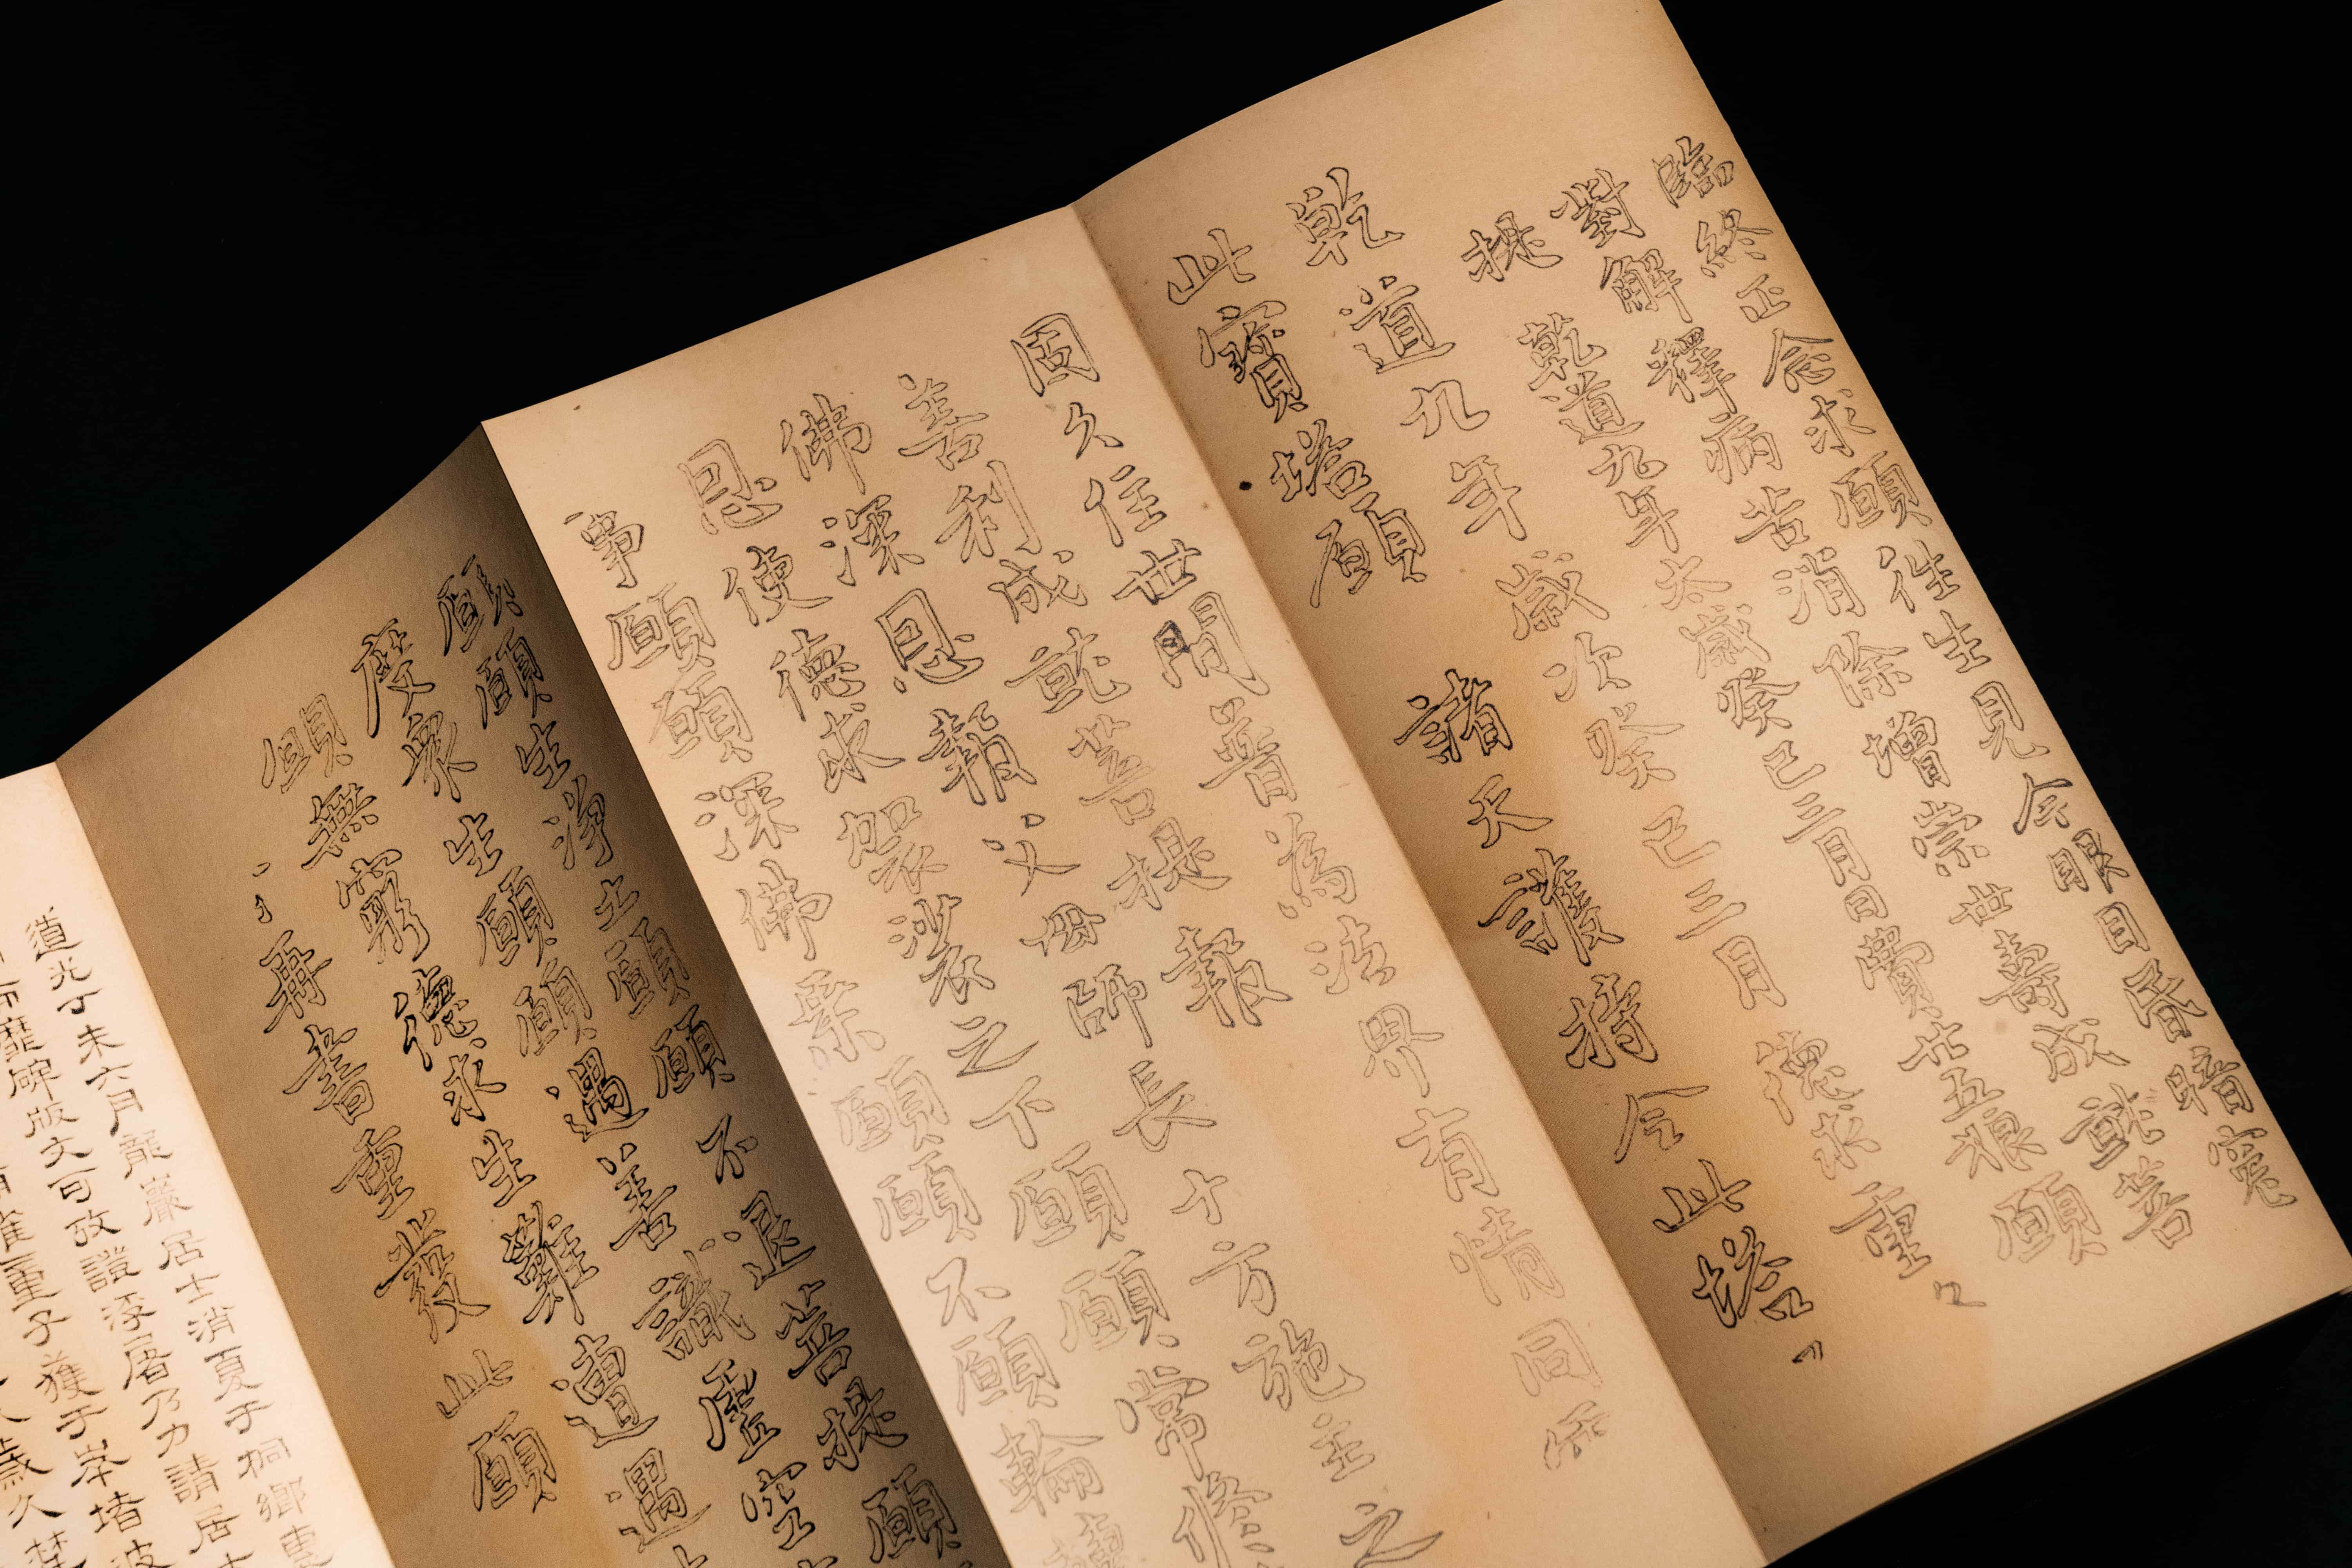 臨終正念求願往生見今眼目昏暗宛
對解釋病苦消除增崇世壽成就菩
提 乾道九年太歲癸巳三月日費廿五狼願
乾道九年歲次癸巳三月 德求重々
此寶塔願 諸天護持令此塔〃
固久住世間普為法界有情同
善利成就菩提報
佛深恩報父母師長十方施主之
恩使德求袈裟之下願願常修
事願願深佛乘願願不願輪
願願生淨土願願不退菩提願
度衆生願願遇善識虛空
願無窮德求生難遭遇
再書重發此願
道光丁未六月龍巖居士消夏于桐鄉
靡碑版文可攷證浮屠乃力請居
重子獲于岸堵波
歲久